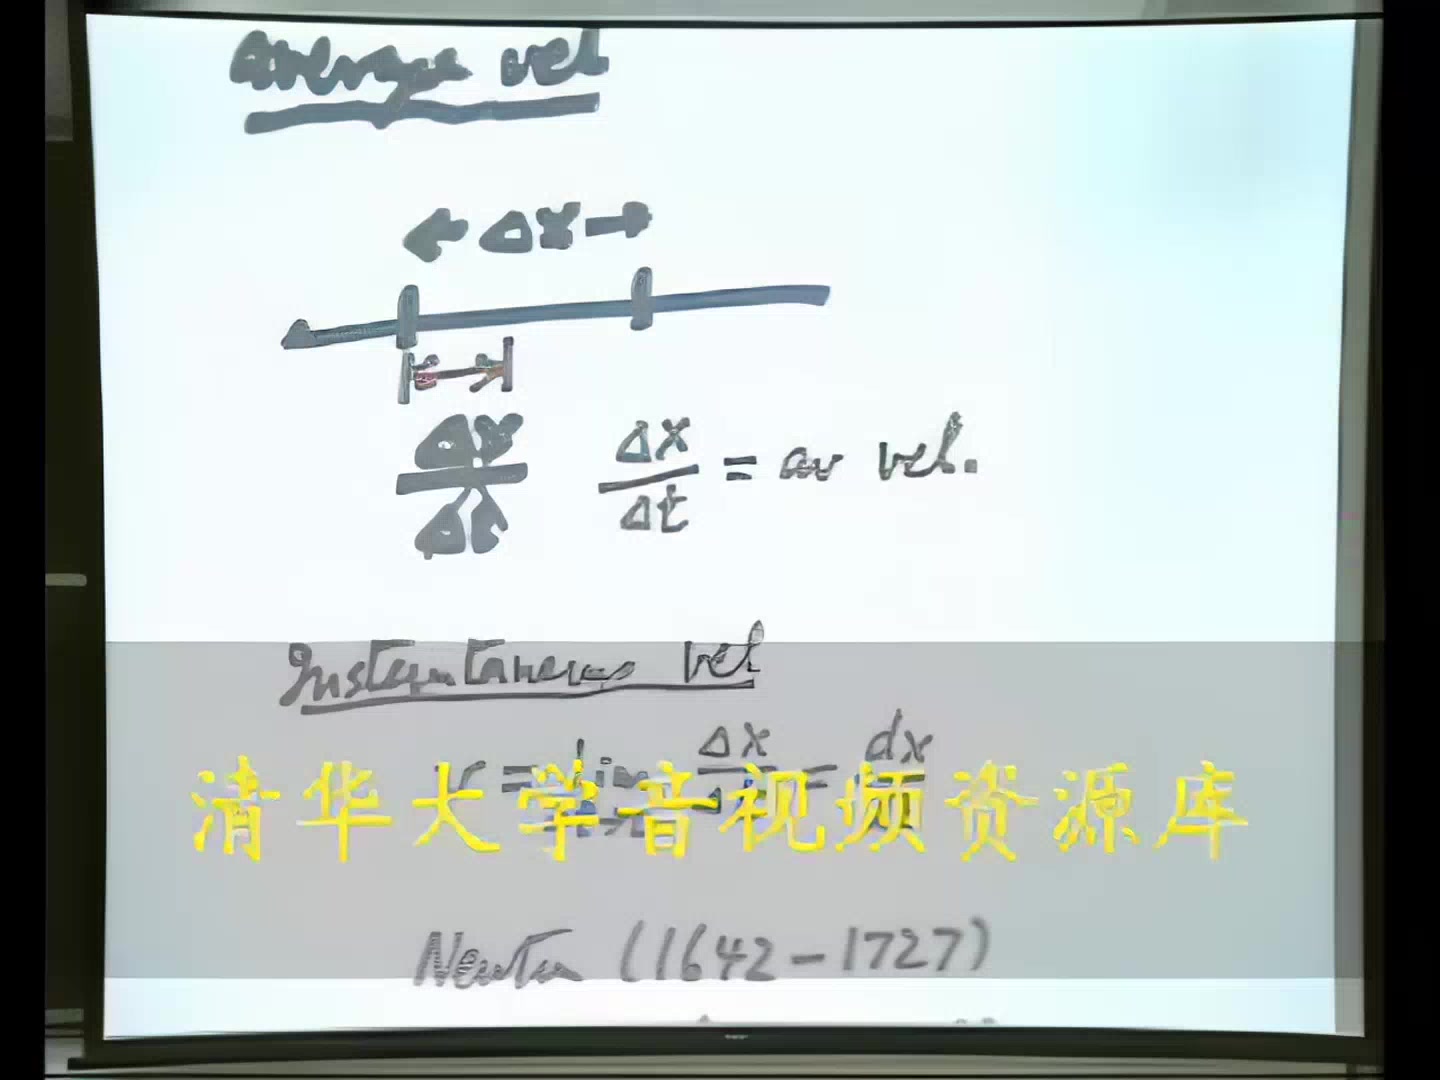 average vel
← Δx →
Δx/Δt Δx/Δt = av vel.
Instantaneous vel
v = lim Δx/Δt = dx
清华大学音视频资源库
Newton (1642-1727)